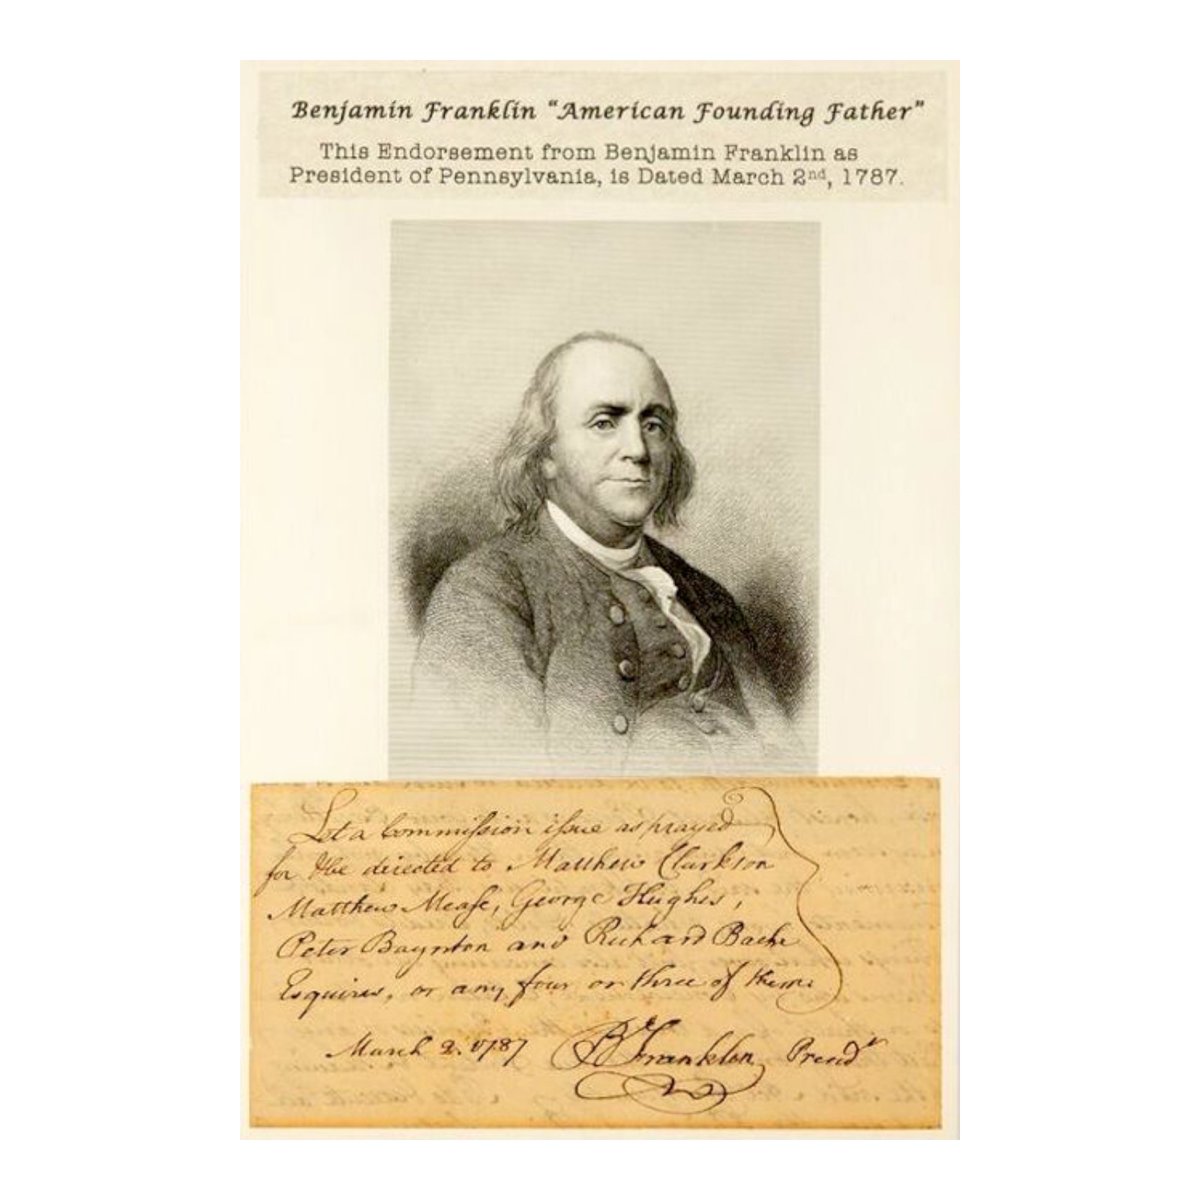 Benjamin Franklin “American Founding Father”
This Endorsement from Benjamin Franklin as
President of Pennsylvania, is Dated March 2nd, 1787.
Let a Commission issue as prayed
for &be directed to Matthew Clarkson
Matthew Mease, George Hughes,
Peter Baynton and Richard Bache
Esquires, or any four or three of them
March 2. 1787 B Franklin Presid^t